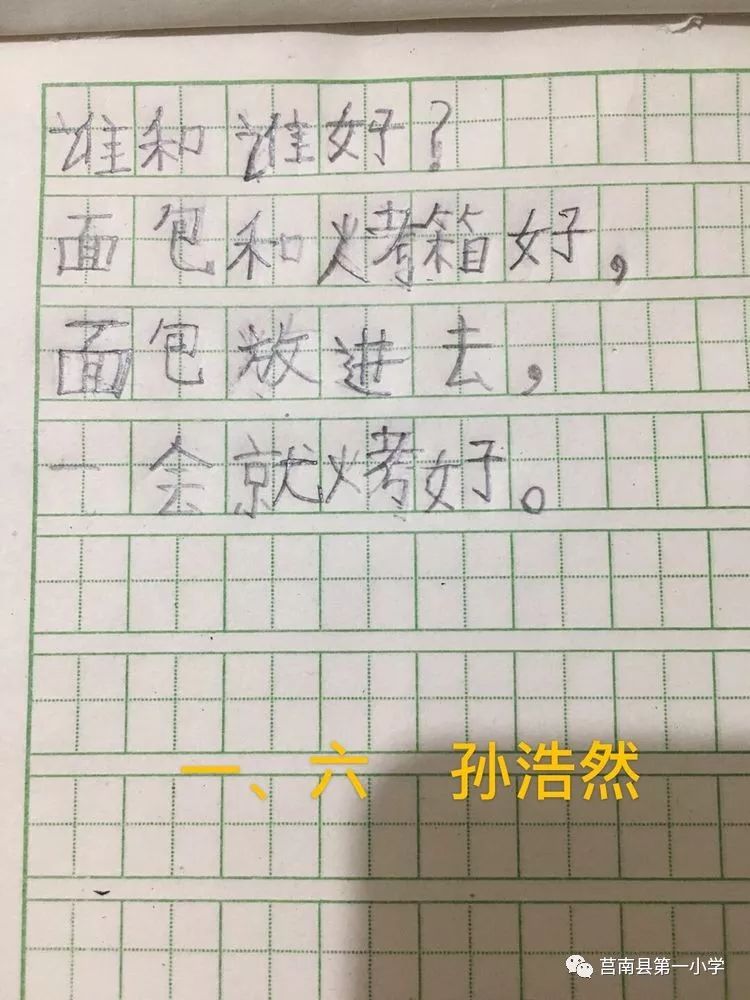 谁和谁好？
面包和烤箱好，
面包放进去，
一会就烤好。
一、六 孙浩然
莒南县第一小学